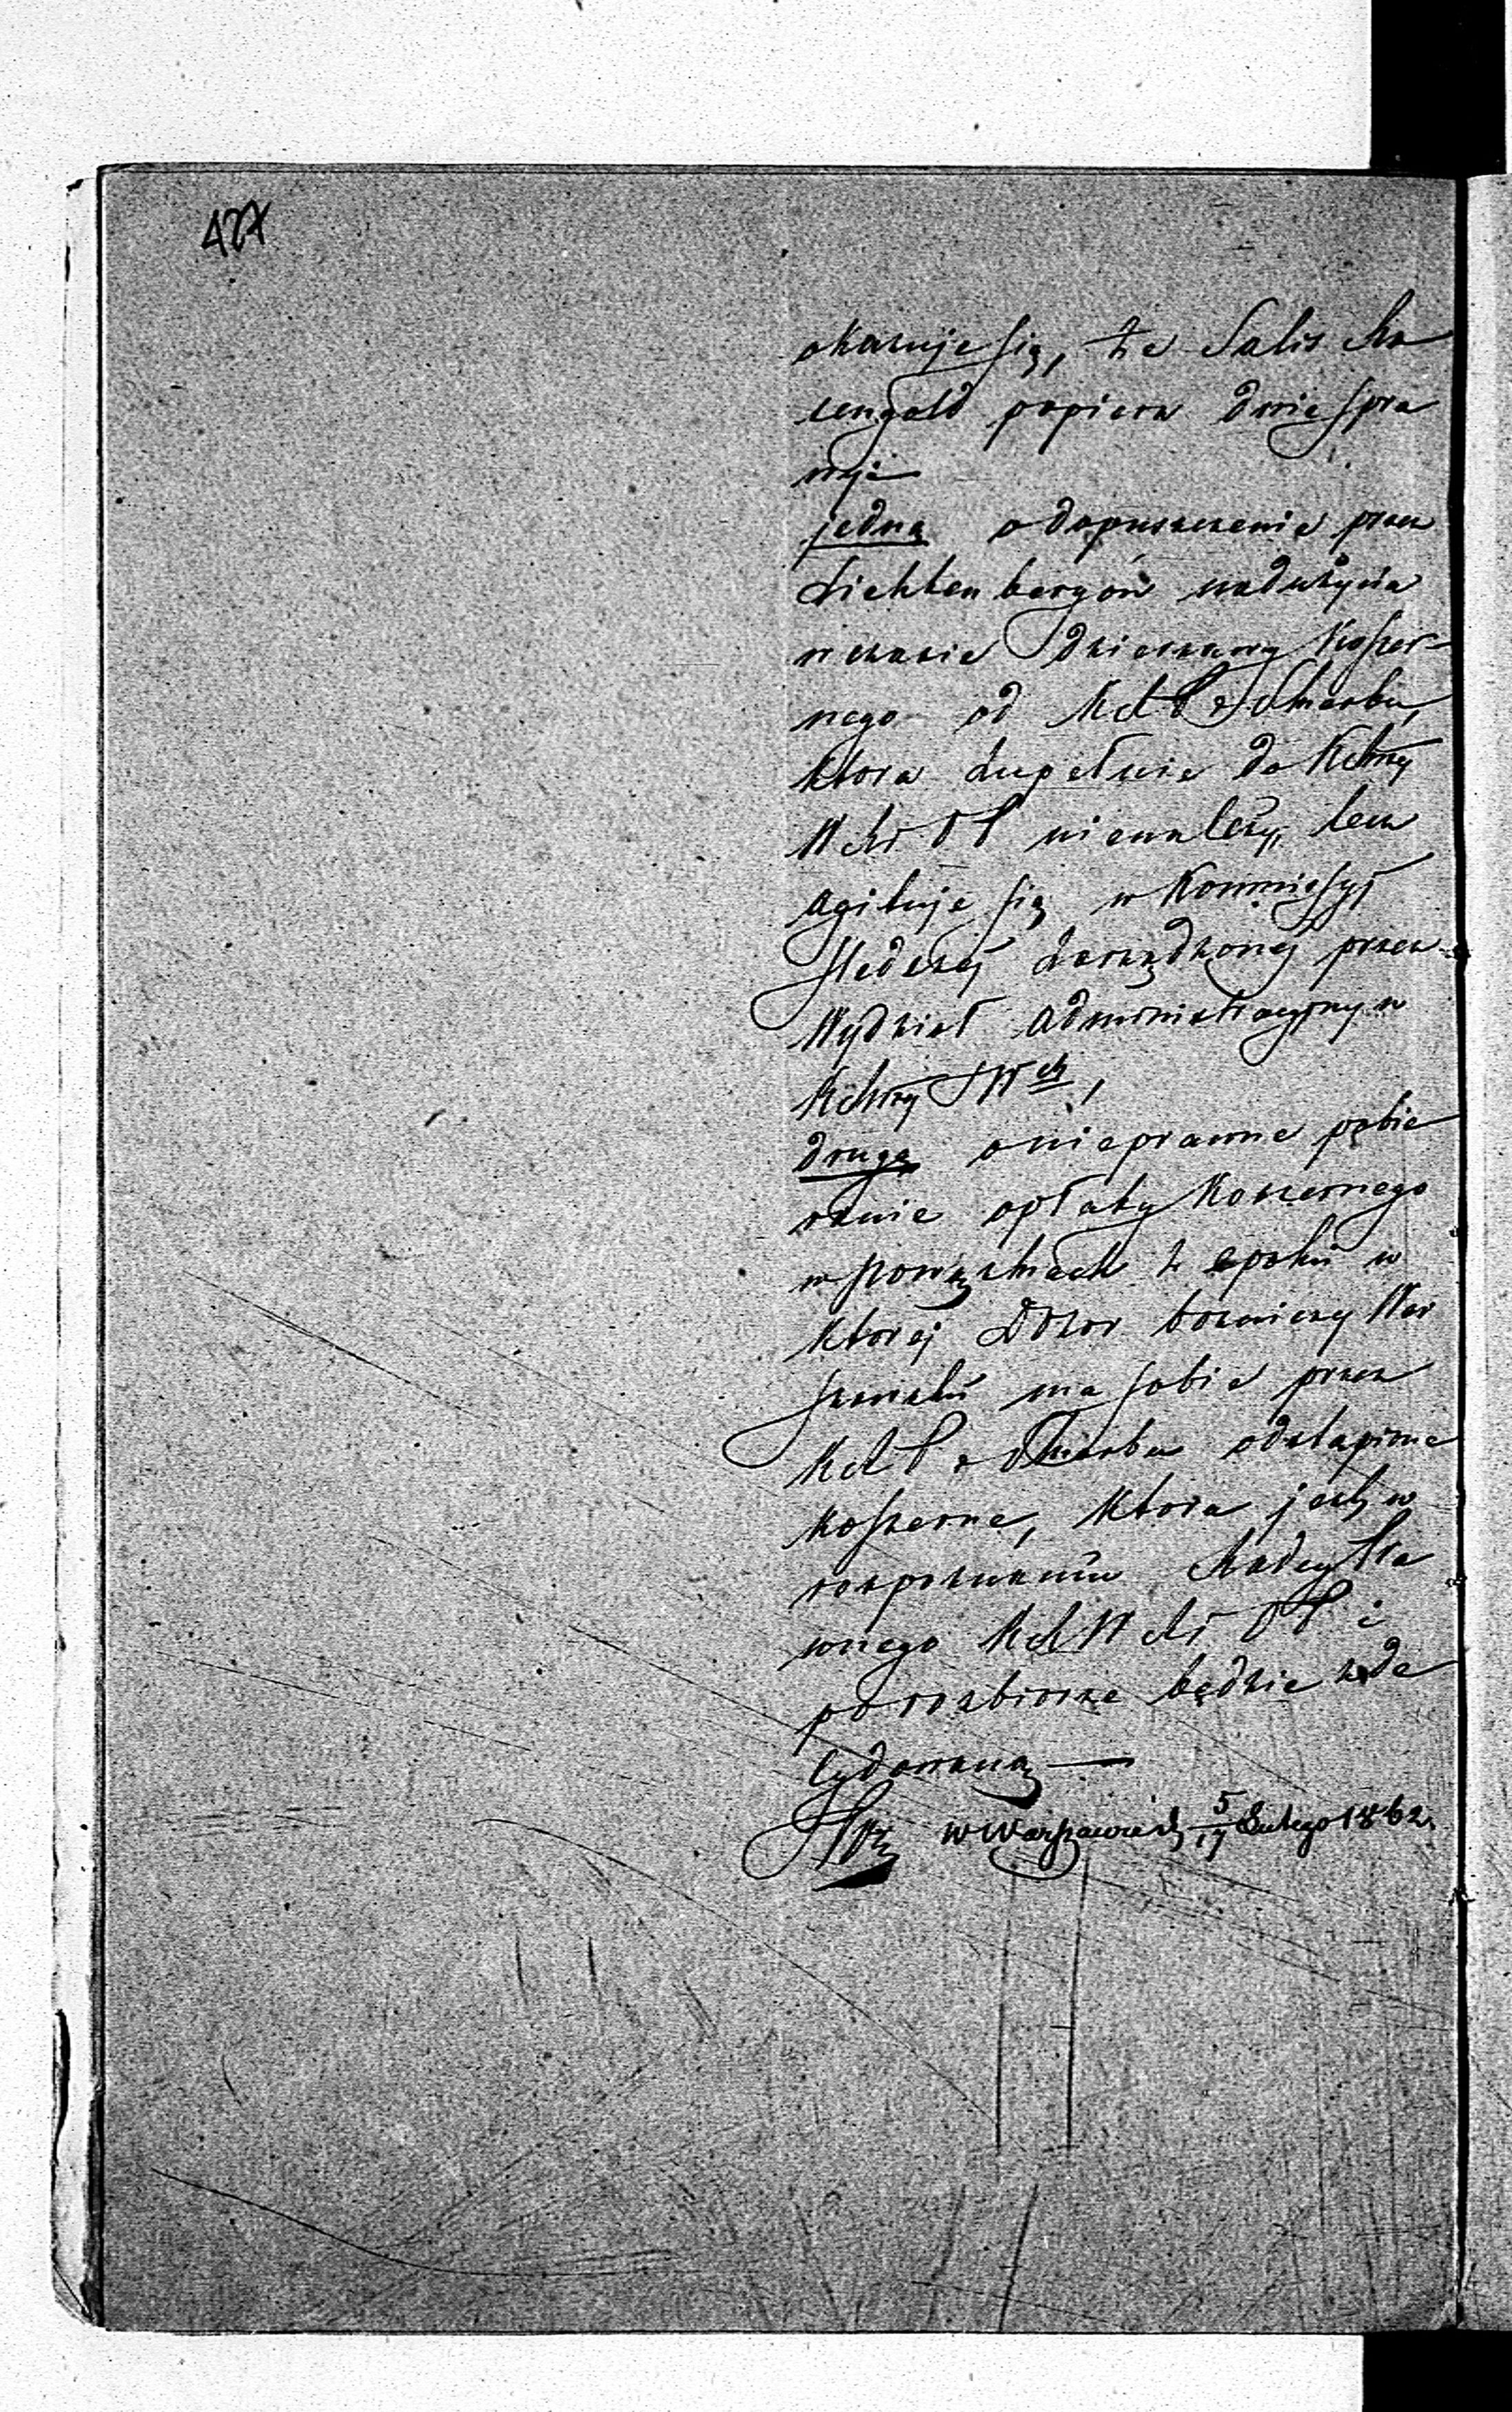 427
okazuje się, że Salis Ma
zengold popiera dwie spra
wy:
jedną o dopuszczenie przez
Lichtenbergów nadużycia
w czasie dzierżawy koszer-
nego od K R P i Skarbu,
która zupełnie do
nienależy, lecz
agituje się w Kommissyi
śledczej zarządzonej przez
Wydział Administracyjny w
drugą o nieprawne pobie
ranie opłaty koszernego
w Powązkach z epoki w
której Dozór bożniczy War
szawski ma sobie przez
K R P i Skarbu odstąpione
koszerne, która jest w
rozpoznaniu Radcy Pra
wnego i
po rozbiorze będzie zade
cydowaną —
w Warszawie d 5/17 Lutego 1862.